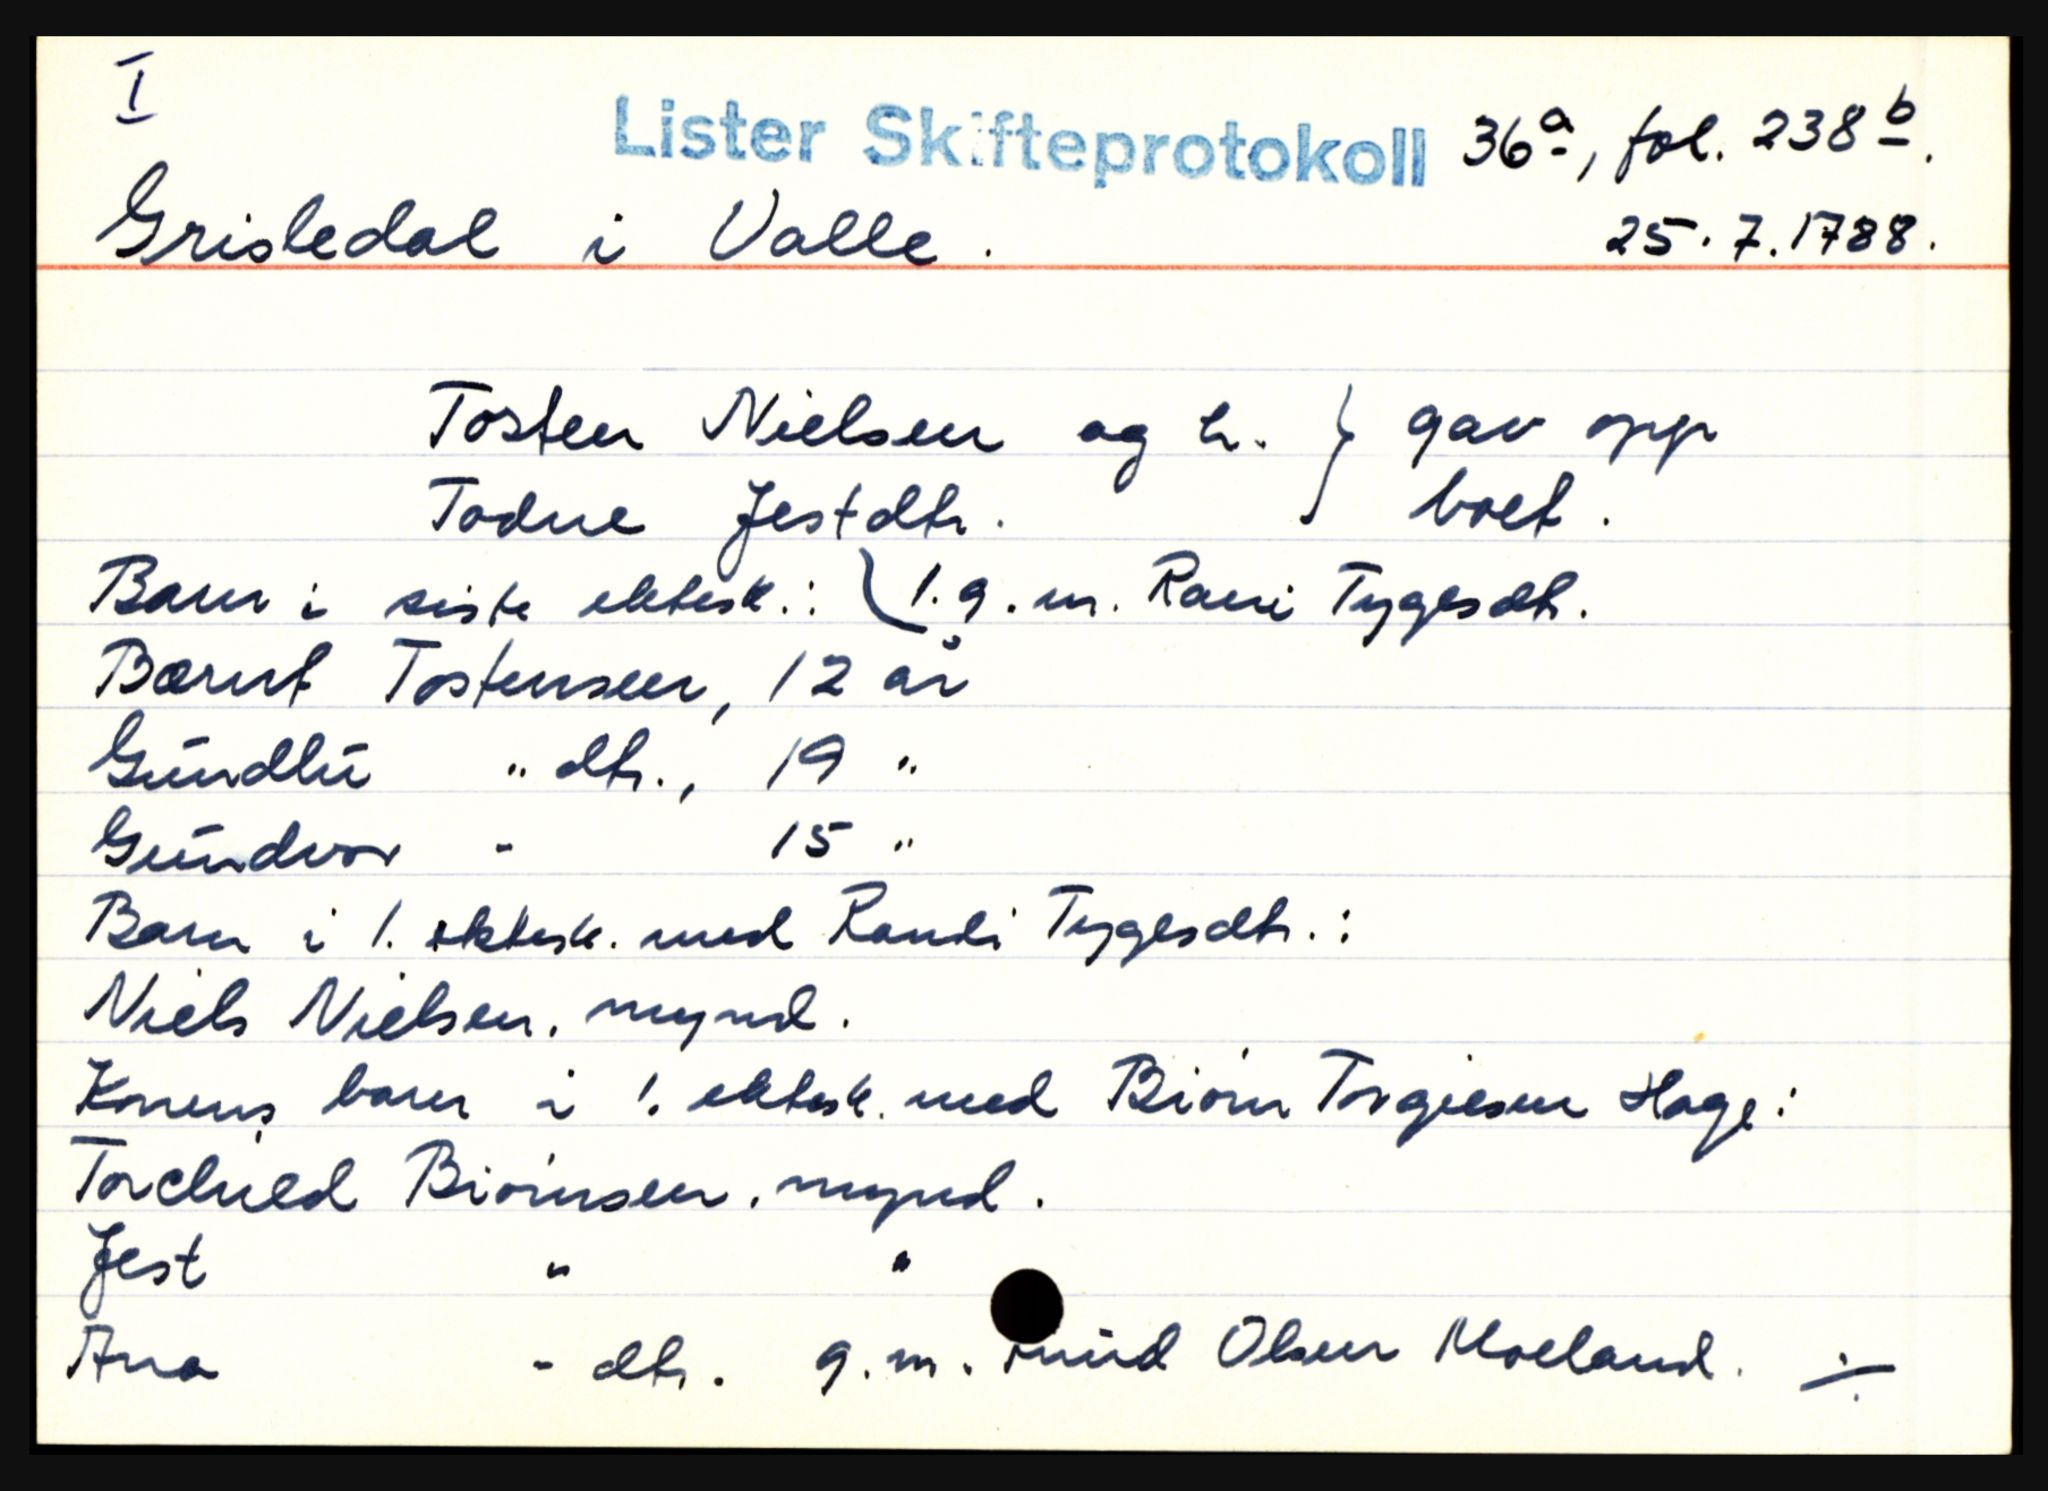 I
Lister Skifteprotokoll 36a, fol. 238b.
Grisledal i Valle. 25.7.1788.
Tosten Nielsen og h. } gav opp
Todne Jestdtr. boet.
Barn i siste ektesk.: (1. g. m. Rani Tygesdtr.
Bærnt Tostensen, 12 år
Gundlu " dtr., 19 "
Gundvor - 15 "
Barn i 1. ektesk. med Randi Tygesdtr.:
Niels Nielsen, mynd.
Konens barn i 1. ektesk. med Biørn Torgiesen Hage:
Torchield Biørnsen, mynd.
Jest " "
Ana - dtr. g. m. Knud Olsen Moeland. ·/·